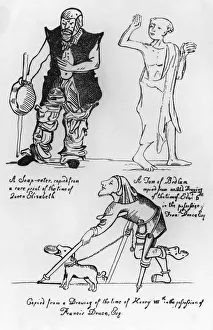 A Soap-eater, copied from
a rare print of the time of
Queen Elizabeth
A Tom of Bedlam
copied from an old Drawing
of the time of
in the possession of
Fran: Douce Esq.
Copied from a Drawing of the time of Henry VIII th. in the possession of
Francis Douce, Esq.